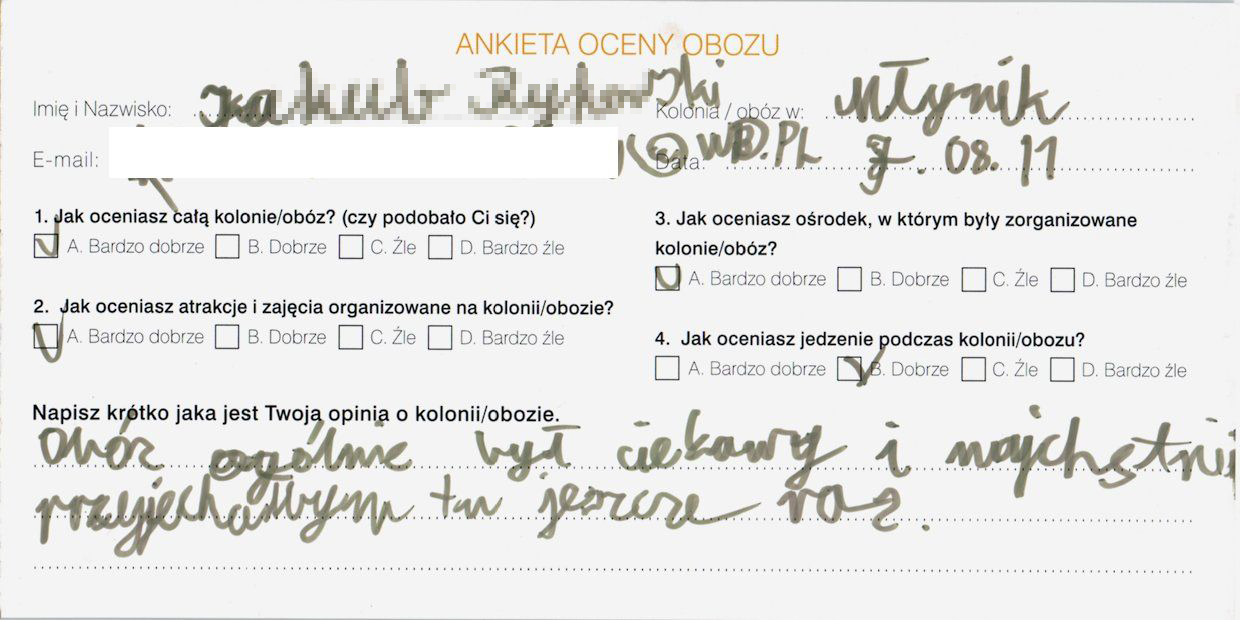 ANKIETA OCENY OBOZU
Imię i Nazwisko:
Kolonia / obóz w: Młynik
E-mail: @WP.PL
Data: 08. 11
1. Jak oceniasz całą kolonie/obóz? (czy podobało Ci się?)
A. Bardzo dobrze B. Dobrze C. Źle D. Bardzo źle
2. Jak oceniasz atrakcje i zajęcia organizowane na kolonii/obozie?
A. Bardzo dobrze B. Dobrze C. Źle D. Bardzo źle
3. Jak oceniasz ośrodek, w którym były zorganizowane
kolonie/obóz?
A. Bardzo dobrze B. Dobrze C. Źle D. Bardzo źle
4. Jak oceniasz jedzenie podczas kolonii/obozu?
A. Bardzo dobrze B. Dobrze C. Źle D. Bardzo źle
Napisz krótko jaka jest Twoja opinia o kolonii/obozie.
Obóz ogólnie był ciekawy i najchętniej
przyjechałbym tu jeszcze raz.